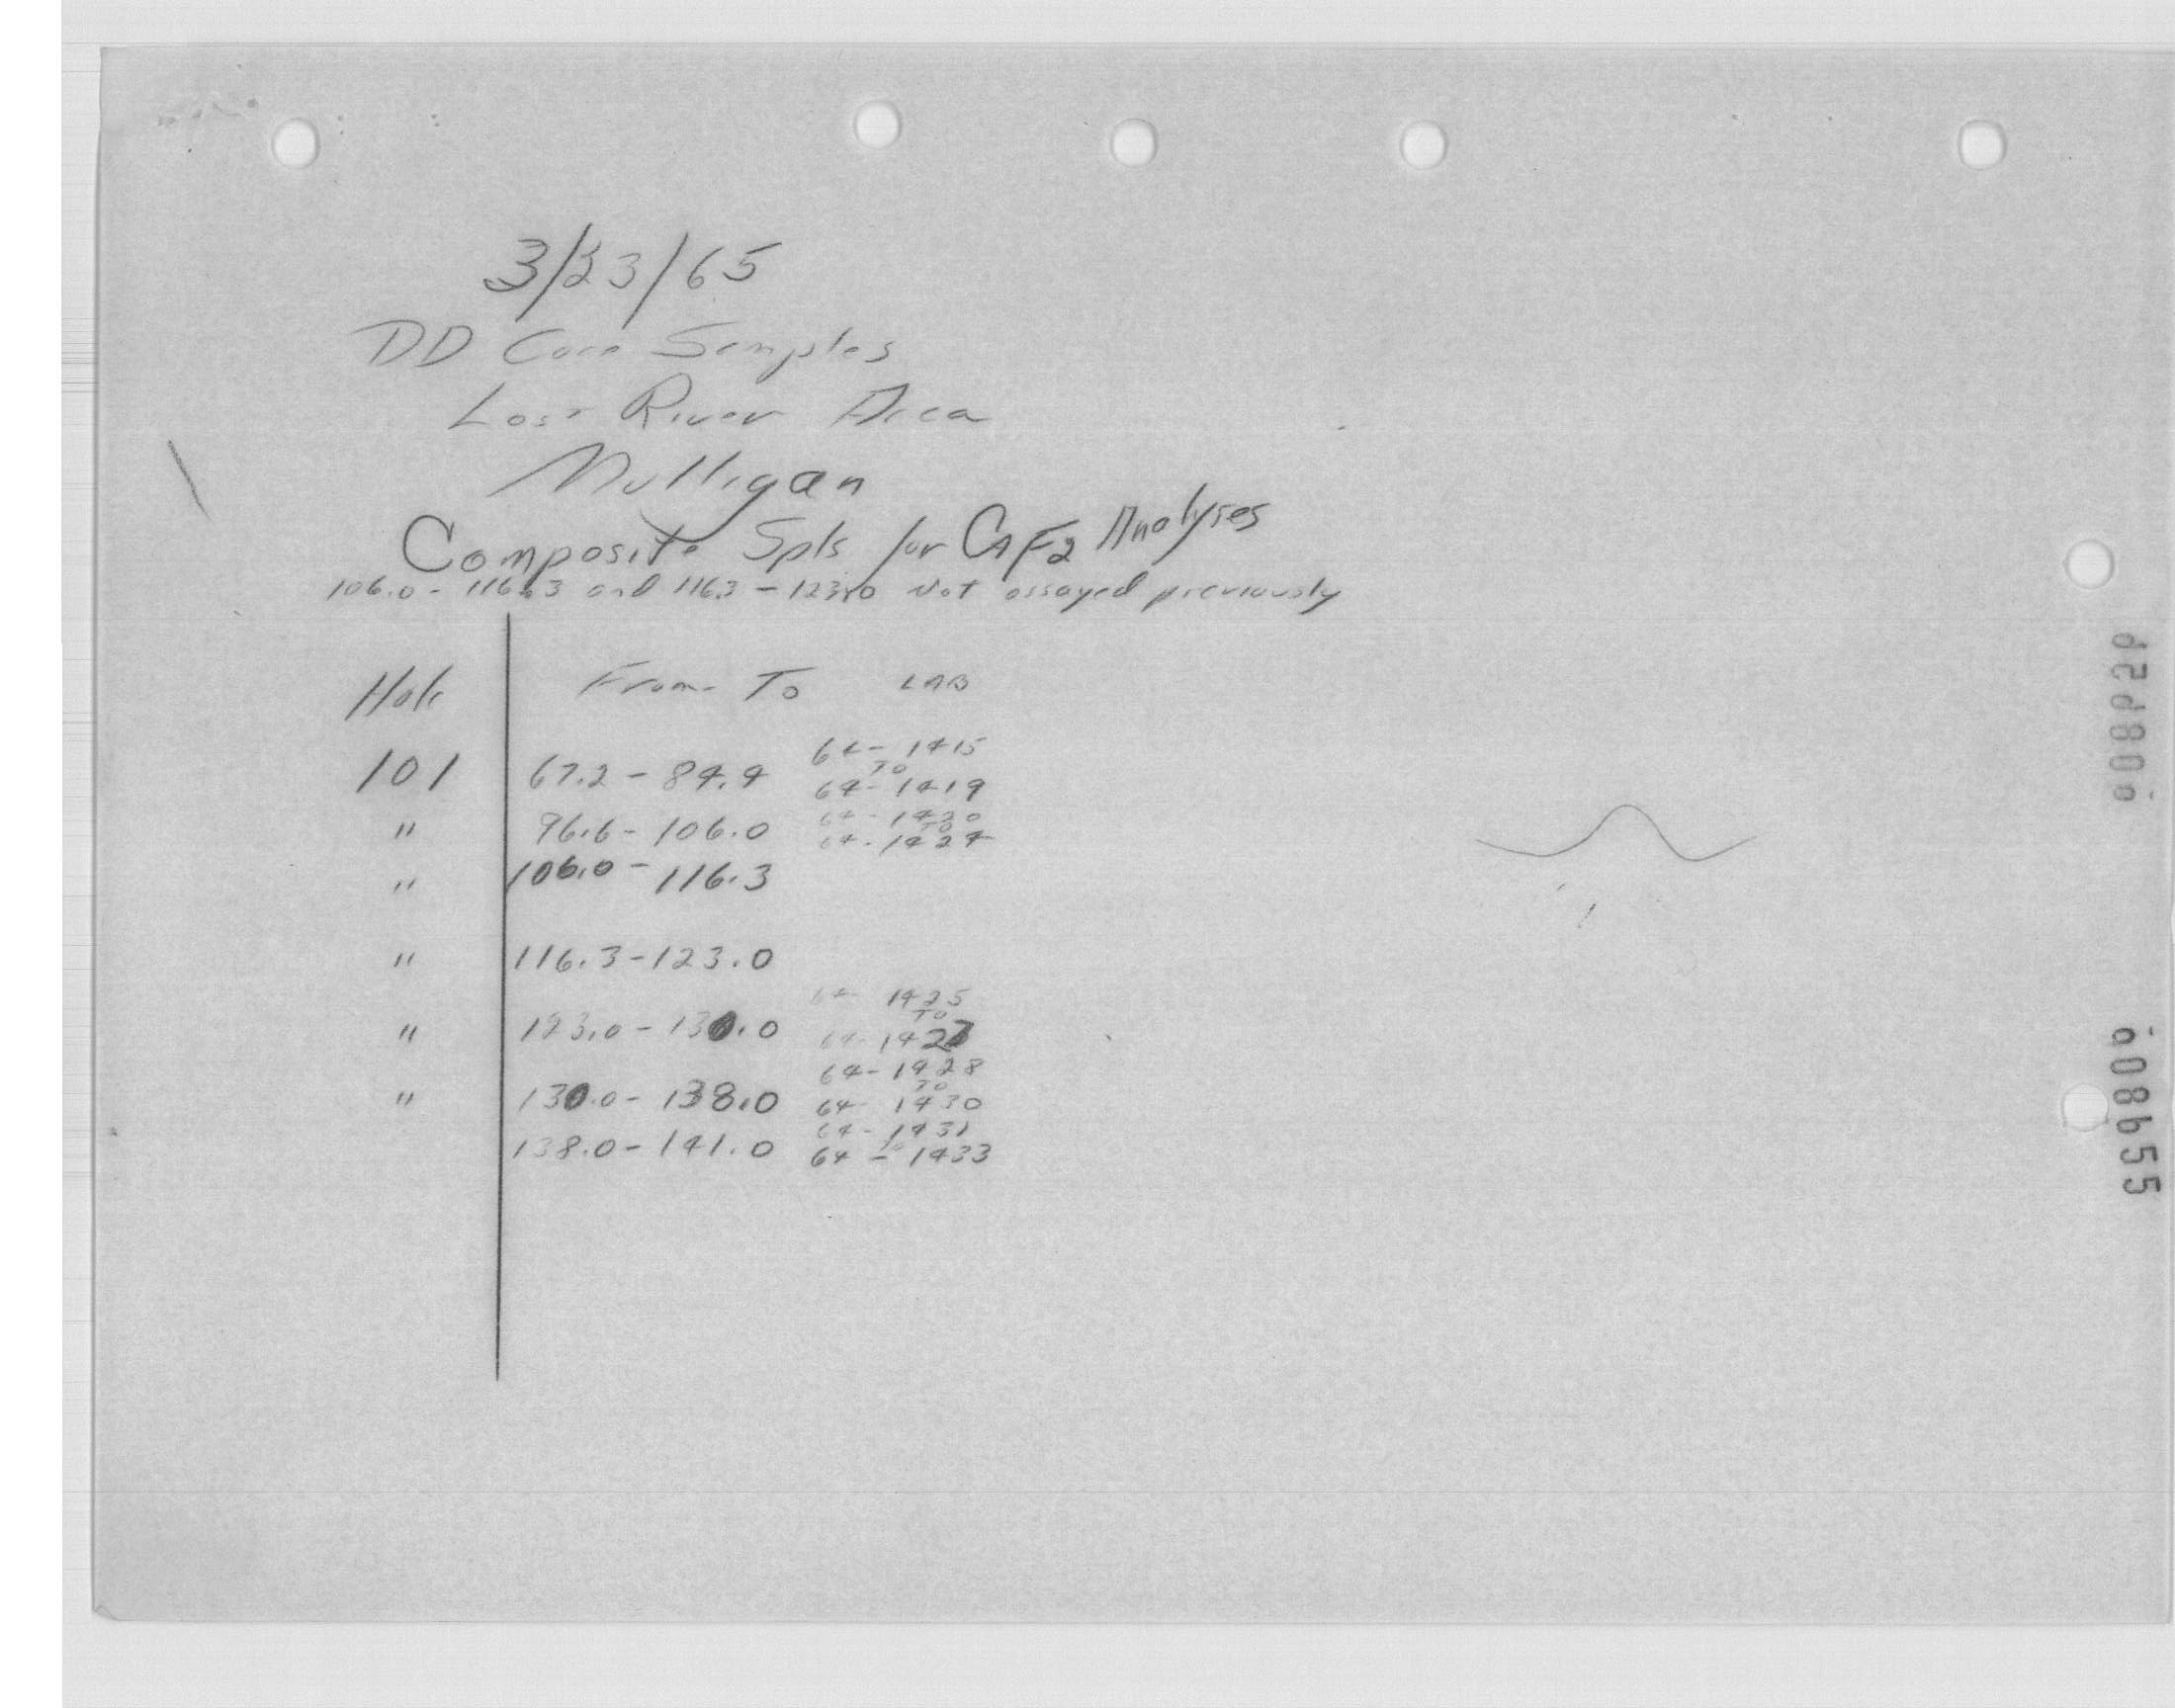 3/23/65
DD Core Samples
Lost River Area
Mulligan
Composite Spls for CAF2 Analyses
106.0 - 116.3 and 116.3 - 123.0 Not assayed previously
Hole From - To LAB
64 - 1415
TO
101 67.2 - 84.4
64 - 1419
64 - 1420
" 96.6 - 106.0
TO
64 - 1424
" 106.0 - 116.3
" 116.3 - 123.0
64 - 1425
TO
" 123.0 - 130.0
64 - 1427
64 - 1428
TO
" 130.0 - 138.0 64 - 1430
64 - 1431
TO
138.0 - 141.0 64 - 1433